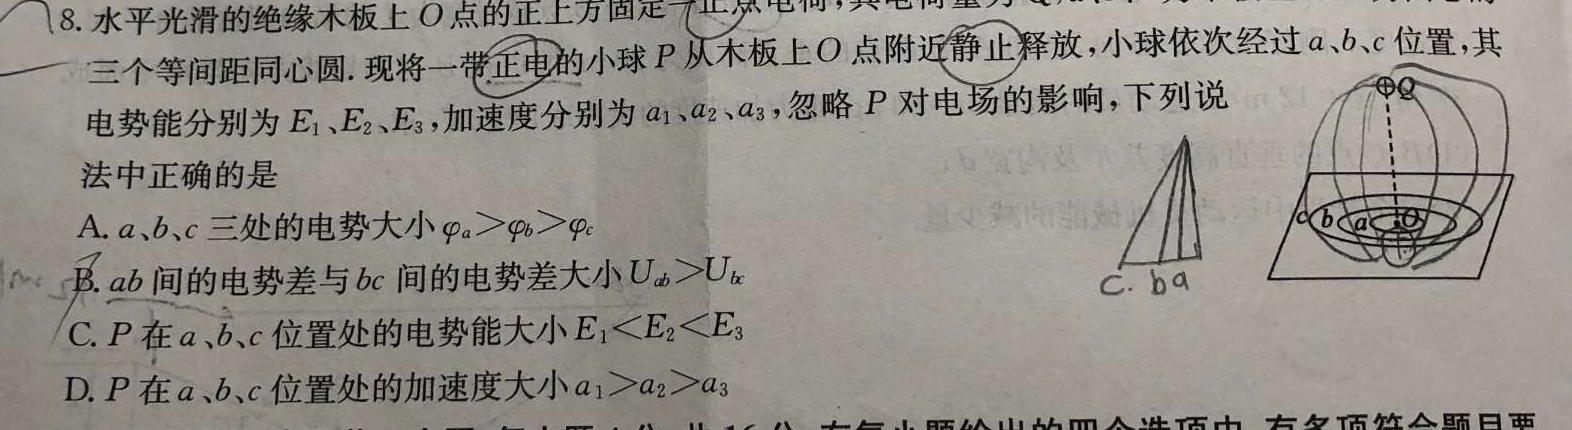 8. 水平光滑的绝缘木板上O点的正上方固定一正点电荷,其电荷量为Q,
三个等间距同心圆. 现将一带正电的小球P从木板上O点附近静止释放,小球依次经过a、b、c位置,其
电势能分别为E₁、E₂、E₃,加速度分别为a₁、a₂、a₃,忽略P对电场的影响,下列说
法中正确的是
A. a、b、c三处的电势大小φa>φb>φc
B. ab间的电势差与bc间的电势差大小Uab>Ubc
C. P在a、b、c位置处的电势能大小E₁<E₂<E₃
D. P在a、b、c位置处的加速度大小a₁>a₂>a₃
Q
c b a O
c. b a
有多项符合题目要